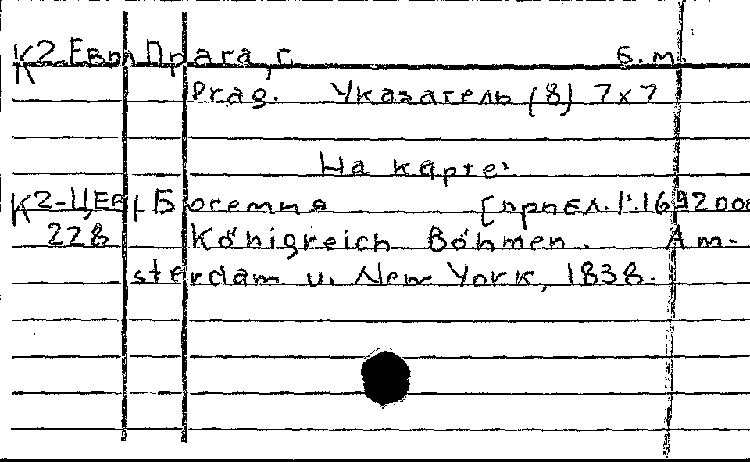 К2-Евр Прага, г. б.м.
Prag. Указатель (8) 7x7
На карте:
К2-ЦЕв Богемия [прибл. 1:1692000
228 Königreich Böhmen. Am-
sterdam u. New York, 1838.